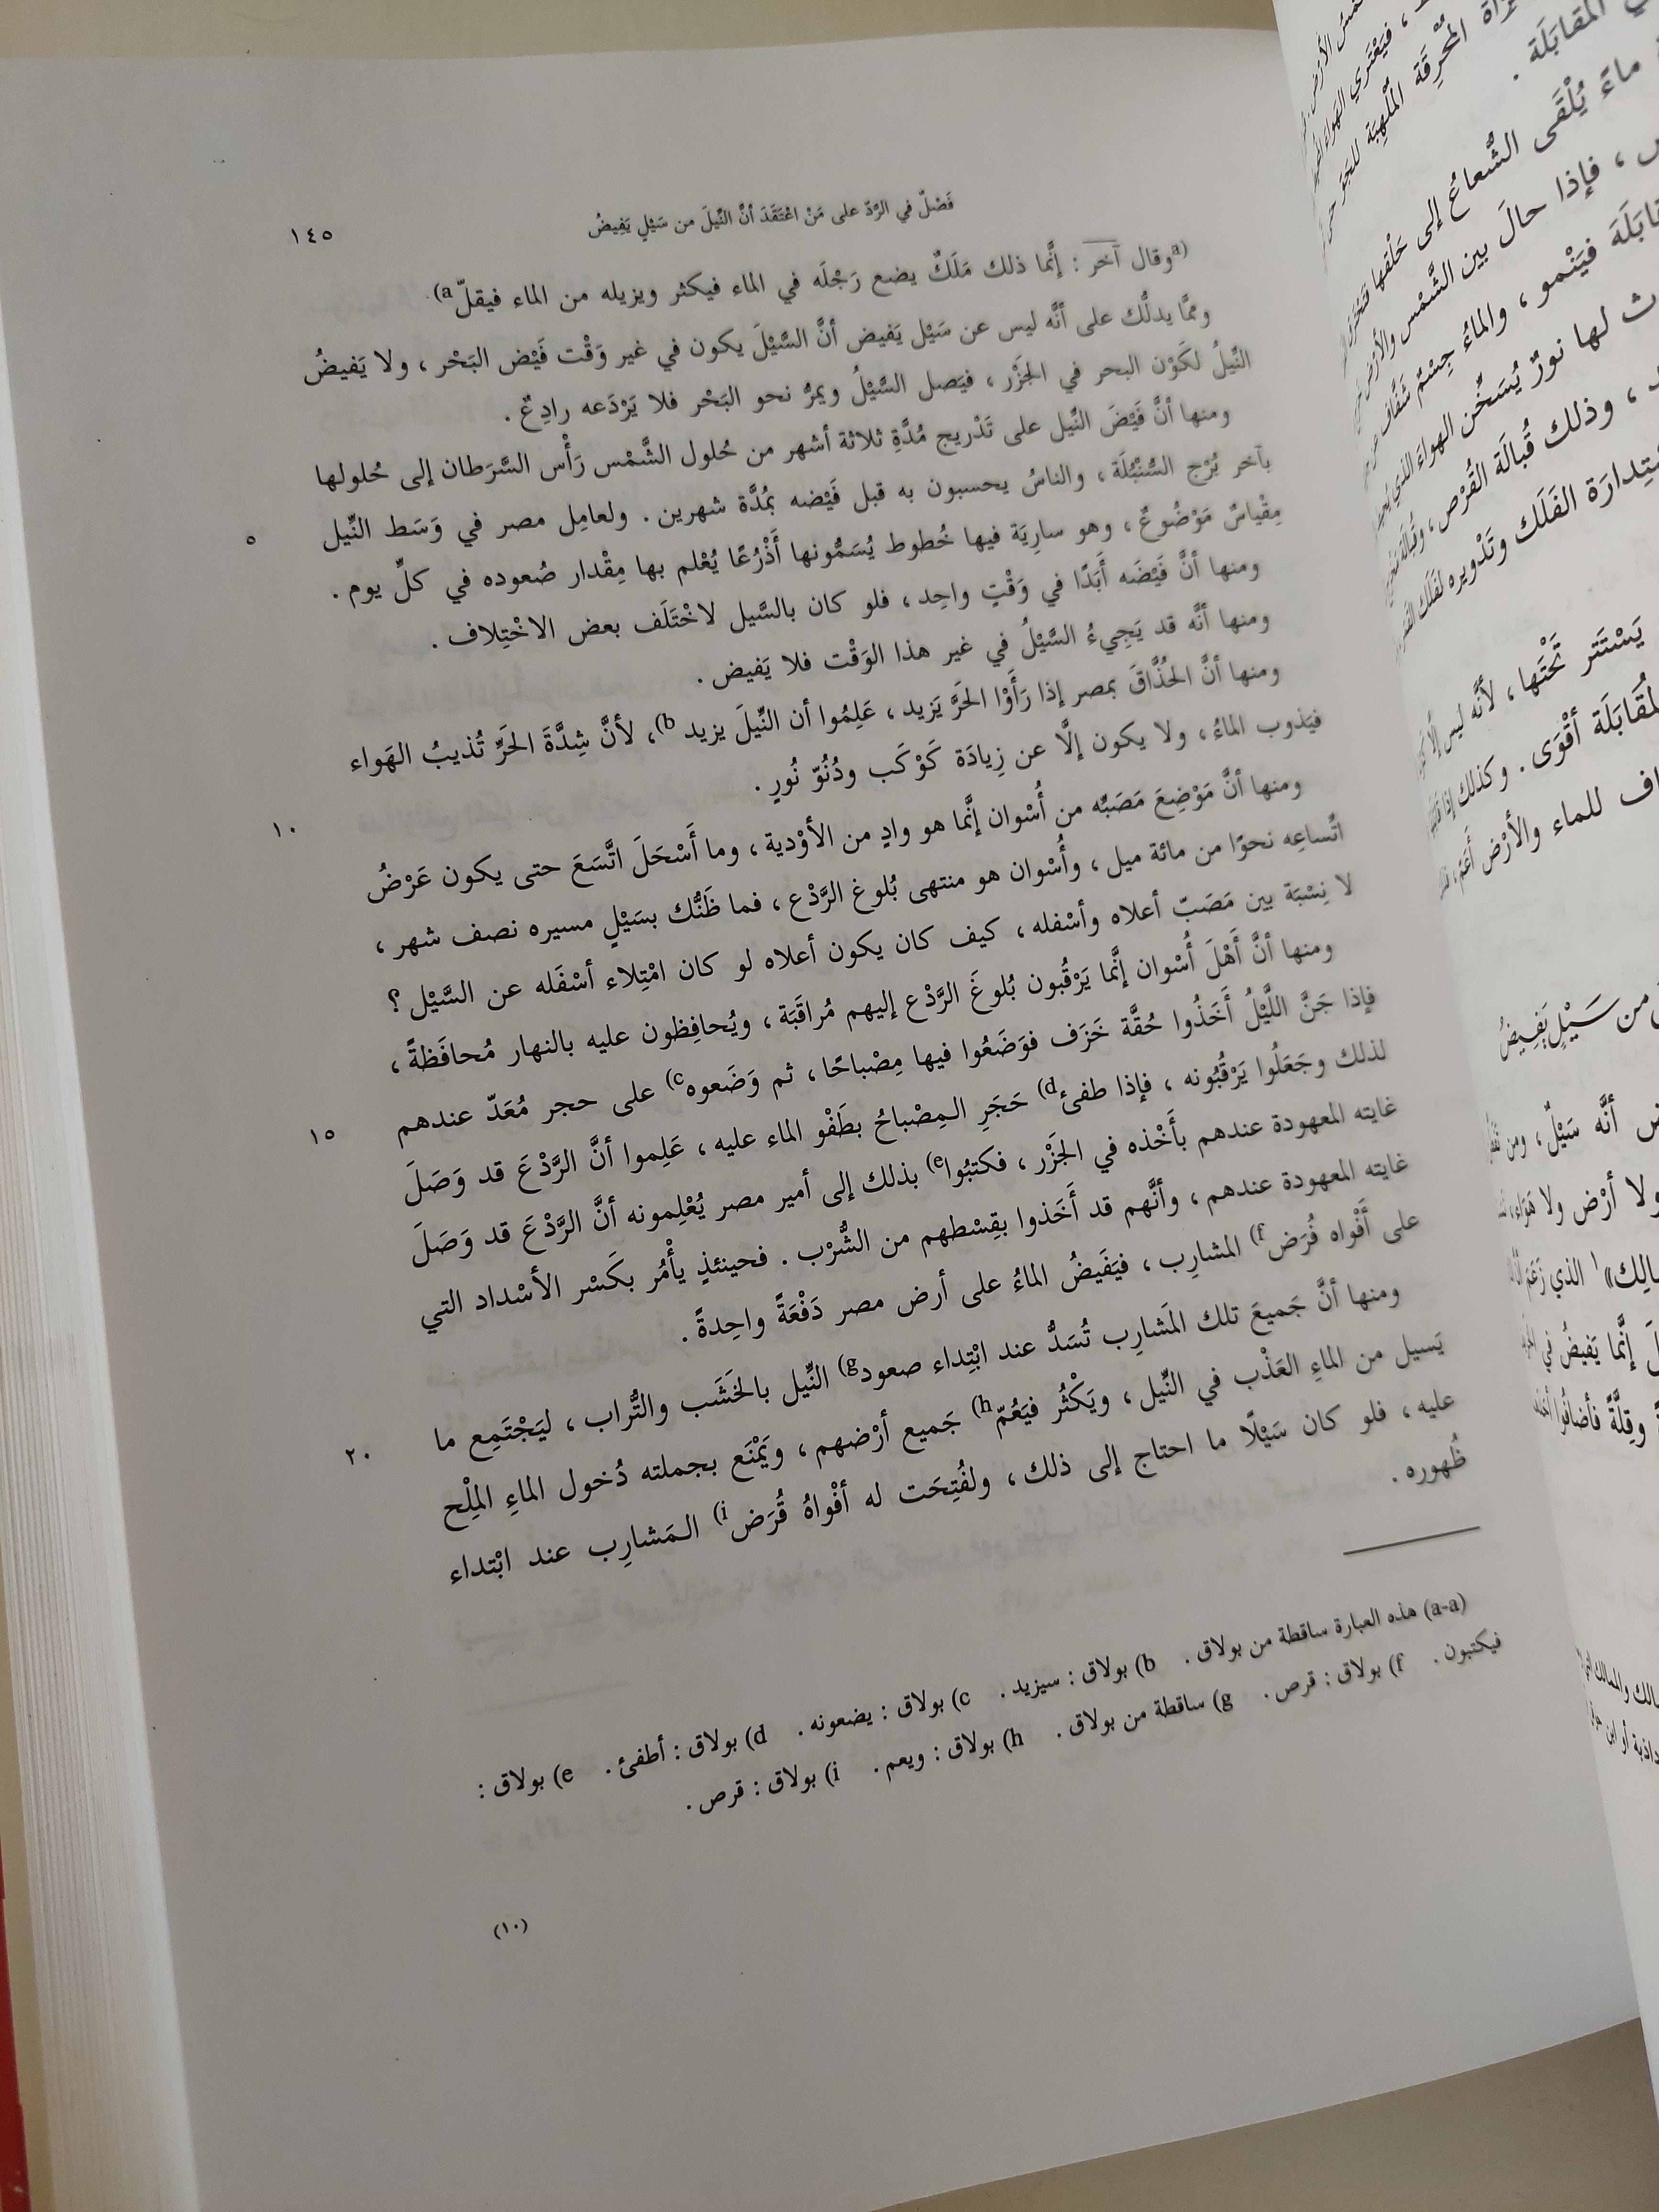 فَصْلٌ في الرَّدّ على مَنْ اعْتَقَدَ أنَّ النِّيلَ من سَيْلٍ يَفِيضُ ١٤٥
(aوقال آخر : إنَّما ذلك مَلَكٌ يضع رَجْلَه في الماء فيكثر ويزيله من الماء فيقلّ a).
وممَّا يدلُّك على أنَّه ليس عن سَيْل يَفيض أنَّ السَّيْلَ يكون في غير وَقْت فَيْض البَحْر ، ولا يَفيضُ
النِّيلُ لكَوْن البحر في الجَزْر ، فيَصل السَّيْلُ ويمرُّ نحو البَحْر فلا يَرْدَعه رادِعٌ .
ومنها أنَّ فَيْضَ النِّيل على تَدْريج مُدَّةِ ثلاثة أشهر من حُلول الشَّمْس رَأْس السَّرَطان إلى حُلولها
بآخر بُرْج السُّنْبُلَة ، والناسُ يحسبون به قبل فَيْضه بمُدَّة شهرين . ولعامِل مصر في وَسَط النِّيل ٥
مِقْياسٌ مَوْضُوعٌ ، وهو سارِيَة فيها خُطوط يُسَمُّونها أَذْرُعًا يُعْلم بها مِقْدار صُعوده في كلِّ يوم .
ومنها أنَّ فَيْضَه أَبَدًا في وَقْتٍ واحِد ، فلو كان بالسَّيل لاخْتَلَف بعض الاخْتِلاف .
ومنها أنَّه قد يَجِيءُ السَّيْلُ في غير هذا الوَقْت فلا يَفيض .
ومنها أنَّ الحُذَّاقَ بمصر إذا رَأَوْا الحَرَّ يَزيد ، عَلِمُوا أن النِّيلَ يزيد b)، لأنَّ شِدَّةَ الحَرِّ تُذيبُ الهَواء
فيَذوب الماءُ ، ولا يكون إلَّا عن زِيادَة كَوْكَب ودُنُوّ نُورٍ .
ومنها أنَّ مَوْضِعَ مَصَبِّه من أُسْوان إنَّما هو وادٍ من الأوْدية ، وما أَسْحَلَ اتَّسَعَ حتى يكون عَرْضُ ١٠
اتِّساعِه نحوًا من مائة ميل ، وأُسْوان هو منتهى بُلوغ الرَّدْع ، فما ظَنُّك بسَيْلٍ مسيره نصف شهر ،
لا نِسْبَة بين مَصَبّ أعلاه وأسْفله ، كيف كان يكون أعلاه لو كان امْتِلاء أسْفَله عن السَّيْل ؟
ومنها أنَّ أَهْلَ أُسْوان إنَّما يَرْقُبون بُلوغَ الرَّدْع إليهم مُراقَبَة ، ويُحافِظون عليه بالنهار مُحافَظةً ،
فإذا جَنَّ اللَّيْلُ أَخَذُوا حُقَّة خَزَف فوَضَعُوا فيها مِصْباحًا ، ثم وَضَعوه c) على حجر مُعَدّ عندهم
لذلك وجَعَلُوا يَرْقُبُونه ، فإذا طفئ d) حَجَرِ المِصْباحُ بطَفْو الماء عليه ، عَلِموا أنَّ الرَّدْعَ قد وَصَلَ ١٥
غايته المعهودة عندهم بأَخْذه في الجَزْر ، فكتبُوا e) بذلك إلى أمير مصر يُعْلِمونه أنَّ الرَّدْعَ قد وَصَلَ
غايته المعهودة عندهم ، وأنَّهم قد أَخَذوا بقِسْطهم من الشُّرْب . فحينئذٍ يأْمُر بكَسْر الأسْداد التي
على أَفْواه فُرَض f) المشارِب ، فيَفَيضُ الماءُ على أرض مصر دَفْعَةً واحِدةً .
ومنها أنَّ جَميعَ تلك المَشارِب تُسَدُّ عند ابْتِداء صعود g) النِّيل بالخَشَب والتُّراب ، ليَجْتَمِع ما
يَسيل من الماءِ العَذْب في النِّيل ، ويَكْثُر فيَعُمّ h) جَميع أرْضهم ، ويَمْنَع بجملته دُخول الماءِ المِلْح ٢٠
عليه ، فلو كان سَيْلًا ما احتاج إلى ذلك ، ولفُتِحَت له أفْواهُ فُرَض i) المَشارِب عند ابْتداء
ظُهوره .
(a-a) هذه العبارة ساقطة من بولاق . b) بولاق : سيزيد . c) بولاق : يضعونه . d) بولاق : أطفئ . e) بولاق :
فيكتبون . f) بولاق : قرص . g) ساقطة من بولاق . h) بولاق : ويعم . i) بولاق : قرص .
(١٠)
المُحْرِقَة المُلْهِبَة
المقابَلَة .
ماءً يُلْقَى الشُّعاعُ إلى حَلْقها
، فإذا حالَ بين الشَّمْس والأرْض
فيَنْمو ، والماءُ جِسْمٌ شَفَّاف
لها نورٌ يُسَخِّن الهواءَ الذي
، وذلك قُبالَة القُرْص ،
الفَلَك وتَدْويره لفَلَك
يَسْتَتر تَحْتَها ، لأنَّه ليس
أَقْوَى . وكذلك إذا
للماء والأرْض أَعَمّ ،
من سَيْلٍ يَفِيضُ
أنَّه سَيْلٌ ، ومن
ولا أرْض ولا هَواء ،
الذي زَعَمَ
إنَّما يَفيضُ في
وقِلَّةً فأضافُوا